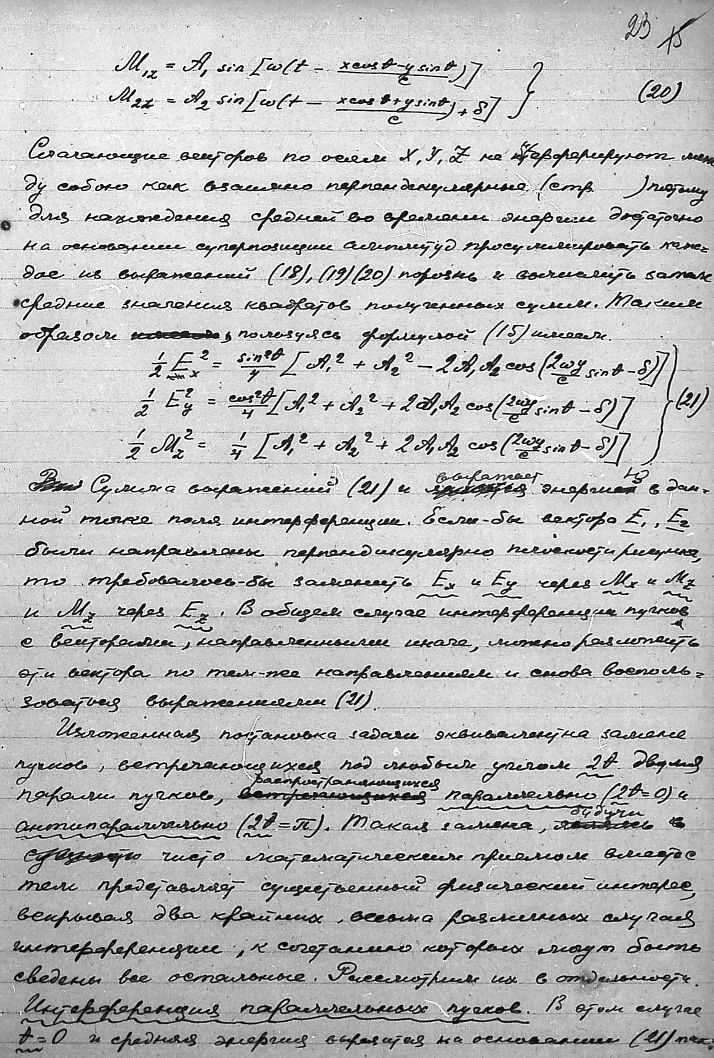 23
M₁z = A₁ sin [ω(t − (x cos θ − y sin θ)/c)]
M₂z = A₂ sin [ω(t − (x cos θ + y sin θ)/c) + δ] } (20)
Слагающие векторов по осям X, Y, Z не интерферируют меж
ду собою как взаимно перпендикулярные (стр ) потому
для нахождения средней во времени энергии достаточно
на основании суперпозиции амплитуд просуммировать каж-
дое из выражений (18), (19) (20) порознь и вычислить затем
средние значения квадратов полученных сумм. Таким
образом, пользуясь формулой (15) имеем.
½ Eₓ² = sin²θ/4 [A₁² + A₂² − 2A₁A₂ cos (2ωy/c sin θ − δ)]
½ E_y² = cos²θ/4 [A₁² + A₂² + 2A₁A₂ cos (2ωy/c sin θ − δ)] } (21)
½ M_z² = ¼ [A₁² + A₂² + 2A₁A₂ cos (2ωy/c sin θ − δ)]
Сумма выражений (21) и выражает энергию в дан-
ной точке поля интерференции. Если-бы вектора E₁, E₂
были направлены перпендикулярно плоскости рисунка,
то требовалось-бы заменить Eₓ и E_y через Mₓ и M_z
и M_z через E_z. В общем случае интерференции пучков
с векторами, направленными иначе, можно разложить
эти вектора по тем-же направлениям и снова восполь-
зоваться выражениями (21).
Изложенная постановка задачи эквивалентна замене
пучков, встречающихся под любым углом 2θ двумя
парами пучков, распространяющихся параллельно (2θ=0) и
антипараллельно (2θ=π). Такая замена, будучи
чисто математическим приемом вместе с
тем представляет существенный физический интерес,
вскрывая два крайних, весьма различных случая
интерференции, к сочетанию которых могут быть
сведены все остальные. Рассмотрим их в отдельности.
Интерференция параллельных пучков. В этом случае
θ=0 и средняя энергия выразится на основании (21) так: